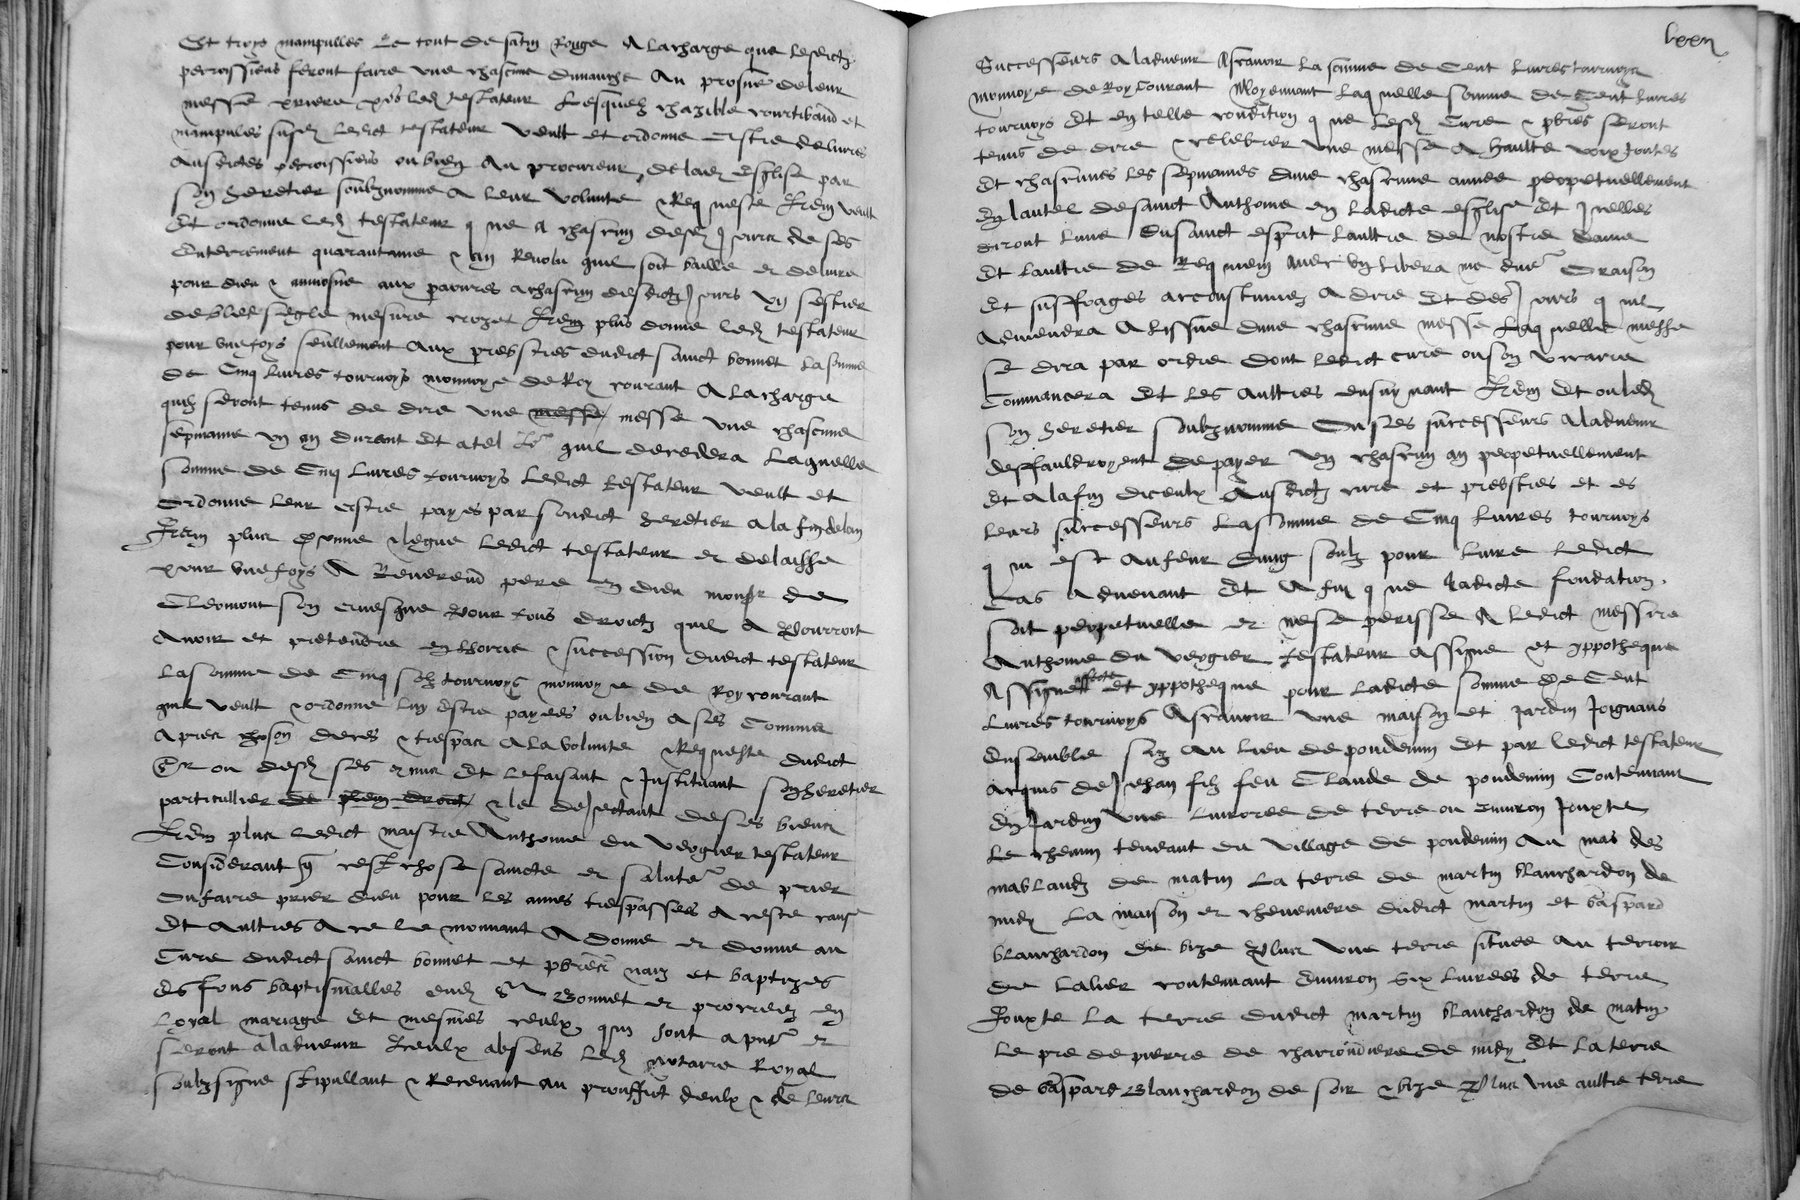 Et troys mampulles le tout de satin Rouge A la charge que lesdictz
perrossiens feront faire une chascune dimanche Au prosne de leur
messe priere pour led testateur Lesquelz chazible courtibaud et
mampules susd ledict testateur veult et ordonne estre delivres
Ausdictes perroissiens ou bien Au procureur de lad esglise par
son heretier soubznomme A leur volunte & Requeste Item veult
Et ordonne led testateur que A chascun desd jours de ses
Enterrement quarantaine & an Revolu quil soit baille et delivre
pour dieu & aumosne aux pauvres a chascun desdictz jours ung sestier
de bled segle mesure crozet Item plus donne led testateur
pour une foys seullement aux prebstres dudict sainct bonnet la somme
de Cinq livres tournoys monnoye de Roy courant A la charge
quilz seront tenus de dire une messe une chascune
sepmaine ung an durant Et a tel quil decedera Laquelle
somme de Cinq livres tournoys ledict testateur veult et
Ordonne leur estre payes par sondict heretier a la fin de lan
Item plus donne & legue ledict testateur et delaisse
pour une foys A Reverend pere en dieu monsr de
Clermont son evesque pour tous droictz quil a pourroit
Avoir et pretendre en lhorrie & succession dudict testateur
La somme de Cinq solz tournoys monnoye de Roy courant
quil veult & ordonne luy estre payees ou bien a ses Commis
Apres son deces & trespas A la volunte & Requeste dudict
Sr ou desd ses Et le faisant & Instituant son heretier
particullier de plein droict & le dejectant de ses biens
Item plus ledict maistre Anthoine du vergier testateur
Considerant que cest chose saincte et de prier
Ou faire prier dieu pour les ames trespasses A ceste cause
Et aultres A ce le mouvant A donne et donne au
Cure dudict sainct bonnet et pbres naiz et baptizes
Es fons baptismalles dud St Bonnet et procreez en
Loyal mariage Et mesmes ceulx qui sont a pnt et
seront a ladvenir Iceulx absens led notaire Royal
soubzsigne stipullant & Recevant au prouffit deulx & de leurs
lxxii
Successeurs A ladvenir Ascavoir La somme de Cent livres tournoys
monnoye de Roy Courant Moyennant Laquelle somme de Cent livres
tournoys Et en telle condition que lesd Cure & pbres seront
tenus de dire & celebrer une messe A haulte voix toutes
Et chascunes les sepmaines dune chascune annee perpetuellement
En lautel de sainct Anthoine en ladicte esglise Et Icelles
diront lune du sainct esprit laultre de nostre dame
Et laultre de Requiem avec ung libera me dne Oraison
Et suffrages accoustumez A dire Et des jours quil
Adviendra A lissue dune chascune messe Laquelle messe
se dira par ordre dont ledict cure ou son vicaire
Commancera Et les Aultres ensuyvant Item Et ou led
son heretier soubznomme Ou ses successeurs A ladvenir
deffauldroyent de payer ung chascun an perpetuellement
Et a la fin diceulx Ausdictz cure et prebstres et es
leurs successeurs la somme de Cinq livres tournoys
qui est au feur dung soulz pour livre ledict
Cas advenant Et Afin que ladicte fondation
soit perpetuelle et ne se perisse A ledict messire
Anthoine du vergier testateur assigne et yppotheque
Assigne affecte Et yppotheque pour ladicte somme de Cent
livres tournoys Ascavoir une maison et jardin Joignans
Ensemble siz Au lieu de pondemin Et par ledict testateur
acquis de Jehan filz feu Claude de pondemin Contenant
En Jardin une livoree de terre ou Environ Jouxte
Le chemin tendant du village de pondemin Au mas des
mablandz de matin La terre de martin blanchardon de
midy La maison et cheneviere dudict martin et gaspard
blanchardon de bize Plus une terre situee Au terroir
de Lalier contenant Environ Six livrees de terre
Jouxte La terre dudict martin blanchardon de matin
Le pre de pierre de charrondiere de midy Et la terre
de Gaspard Blanchardon de soir & bize Plus une aultre terre